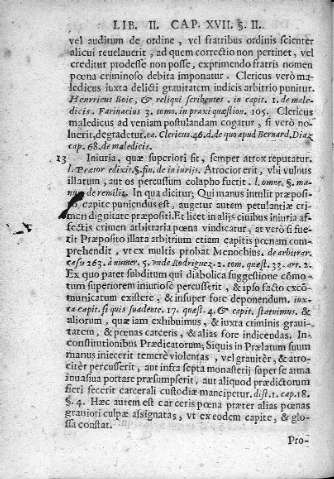 LIB. II. CAP. XVII. §. II.
vel auditum de ordine, vel fratribus ordinis scienter
alicui reuelauerit, ad quem correctio non pertinet, vel
creditur prodesse non posse, exprimendo fratris nomen
pœna criminoso debita imponatur. Clericus verò ma-
ledicus iuxta delicti grauitatem iudicis arbitrio punitur.
Henrricus Boic, & reliqui scribentes, in capit. 1. de male-
dicis. Farinacius tomo, in praxi quæstion. 105. Clericus
maledicus ad veniam postulandam cogatur, si verò no-
luerit, degradetur. ca. Clericum 46. d. de quo apud Bernard. Diaz
cap. 68. de maledicis.
13 Iniuria, quæ superiori fit, semper atrox reputatur.
l. Prætor edixit, §. fin. de iniurijs. Atrocior erit, vbi vulnus
illatum, aut os percussum colapho fuerit. l. omne, §. ma-
nus de remilit. In qua dicitur; Qui manus intulit præposi-
to, capite puniendus est, augetur autem petulantiæ cri-
men dignitate præpositi. Et licet in alijs ciuibus iniuria af-
fectis crimen arbitraria pœna vindicatur, at verò si fue-
rit Præposito illata arbitrium etiam capitis pœnam com-
prehendit, vt ex multis probat Menochius, de arbitrar.
casu 263. à numer. 5. vnde Rodriguez. 2. com. quæst. 33. art. 2.
Ex quo paret subditum qui diabolica suggestione cōmo-
tum superiorem iniuriose percusserit, & ipso facto excō-
municatum existere, & insuper fore deponendum iux-
ta capit. si quis suadente. 17. quæst. 4. & capit. statuimus. &
aliorum, quæ iam exhibuimus, & iuxta criminis graui-
tatem, & pœnas carceris, & alias fore indicendas. In
constitutionibus Prædicatorum; Siquis in Prælatum suum
manus iniecerit temerè violentas, vel grauitèr, & atro-
citèr percusserit, aut infra septa monasterij super se arma
aut præsumpserit, aut aliquod prædictorum
fieri fecerit carcerali custodiæ mancipetur. dist. 1. cap. 18.
§. 4. Hæc autem est carceris pœna præter alias pœnas
grauiori culpæ assignatas, vt ex eodem capite, & glos-
sa constat.
Pro-